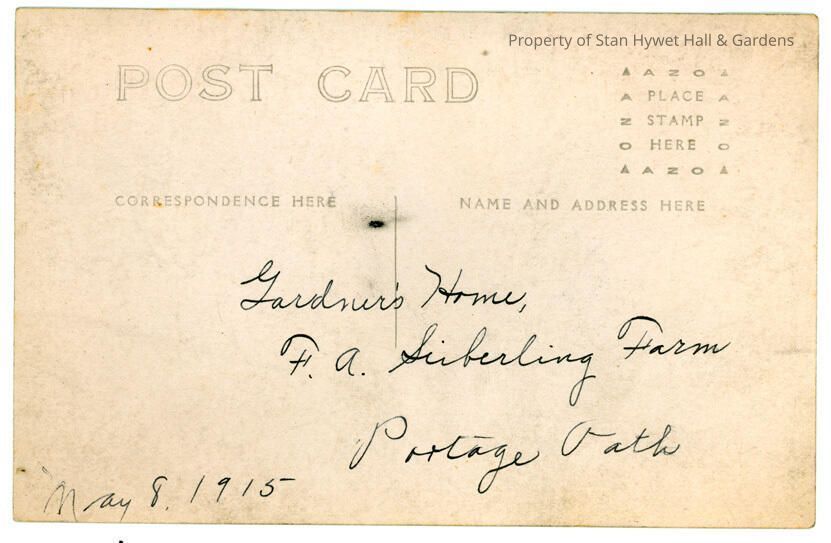 Property of Stan Hywet Hall & Gardens
POST CARD
▲ A Z O ▲
A PLACE A
Z STAMP Z
O HERE O
▲ A Z O ▲
CORRESPONDENCE HERE
NAME AND ADDRESS HERE
Gardner's Home,
F. A. Seiberling Farm
Portage Path
May 8, 1915